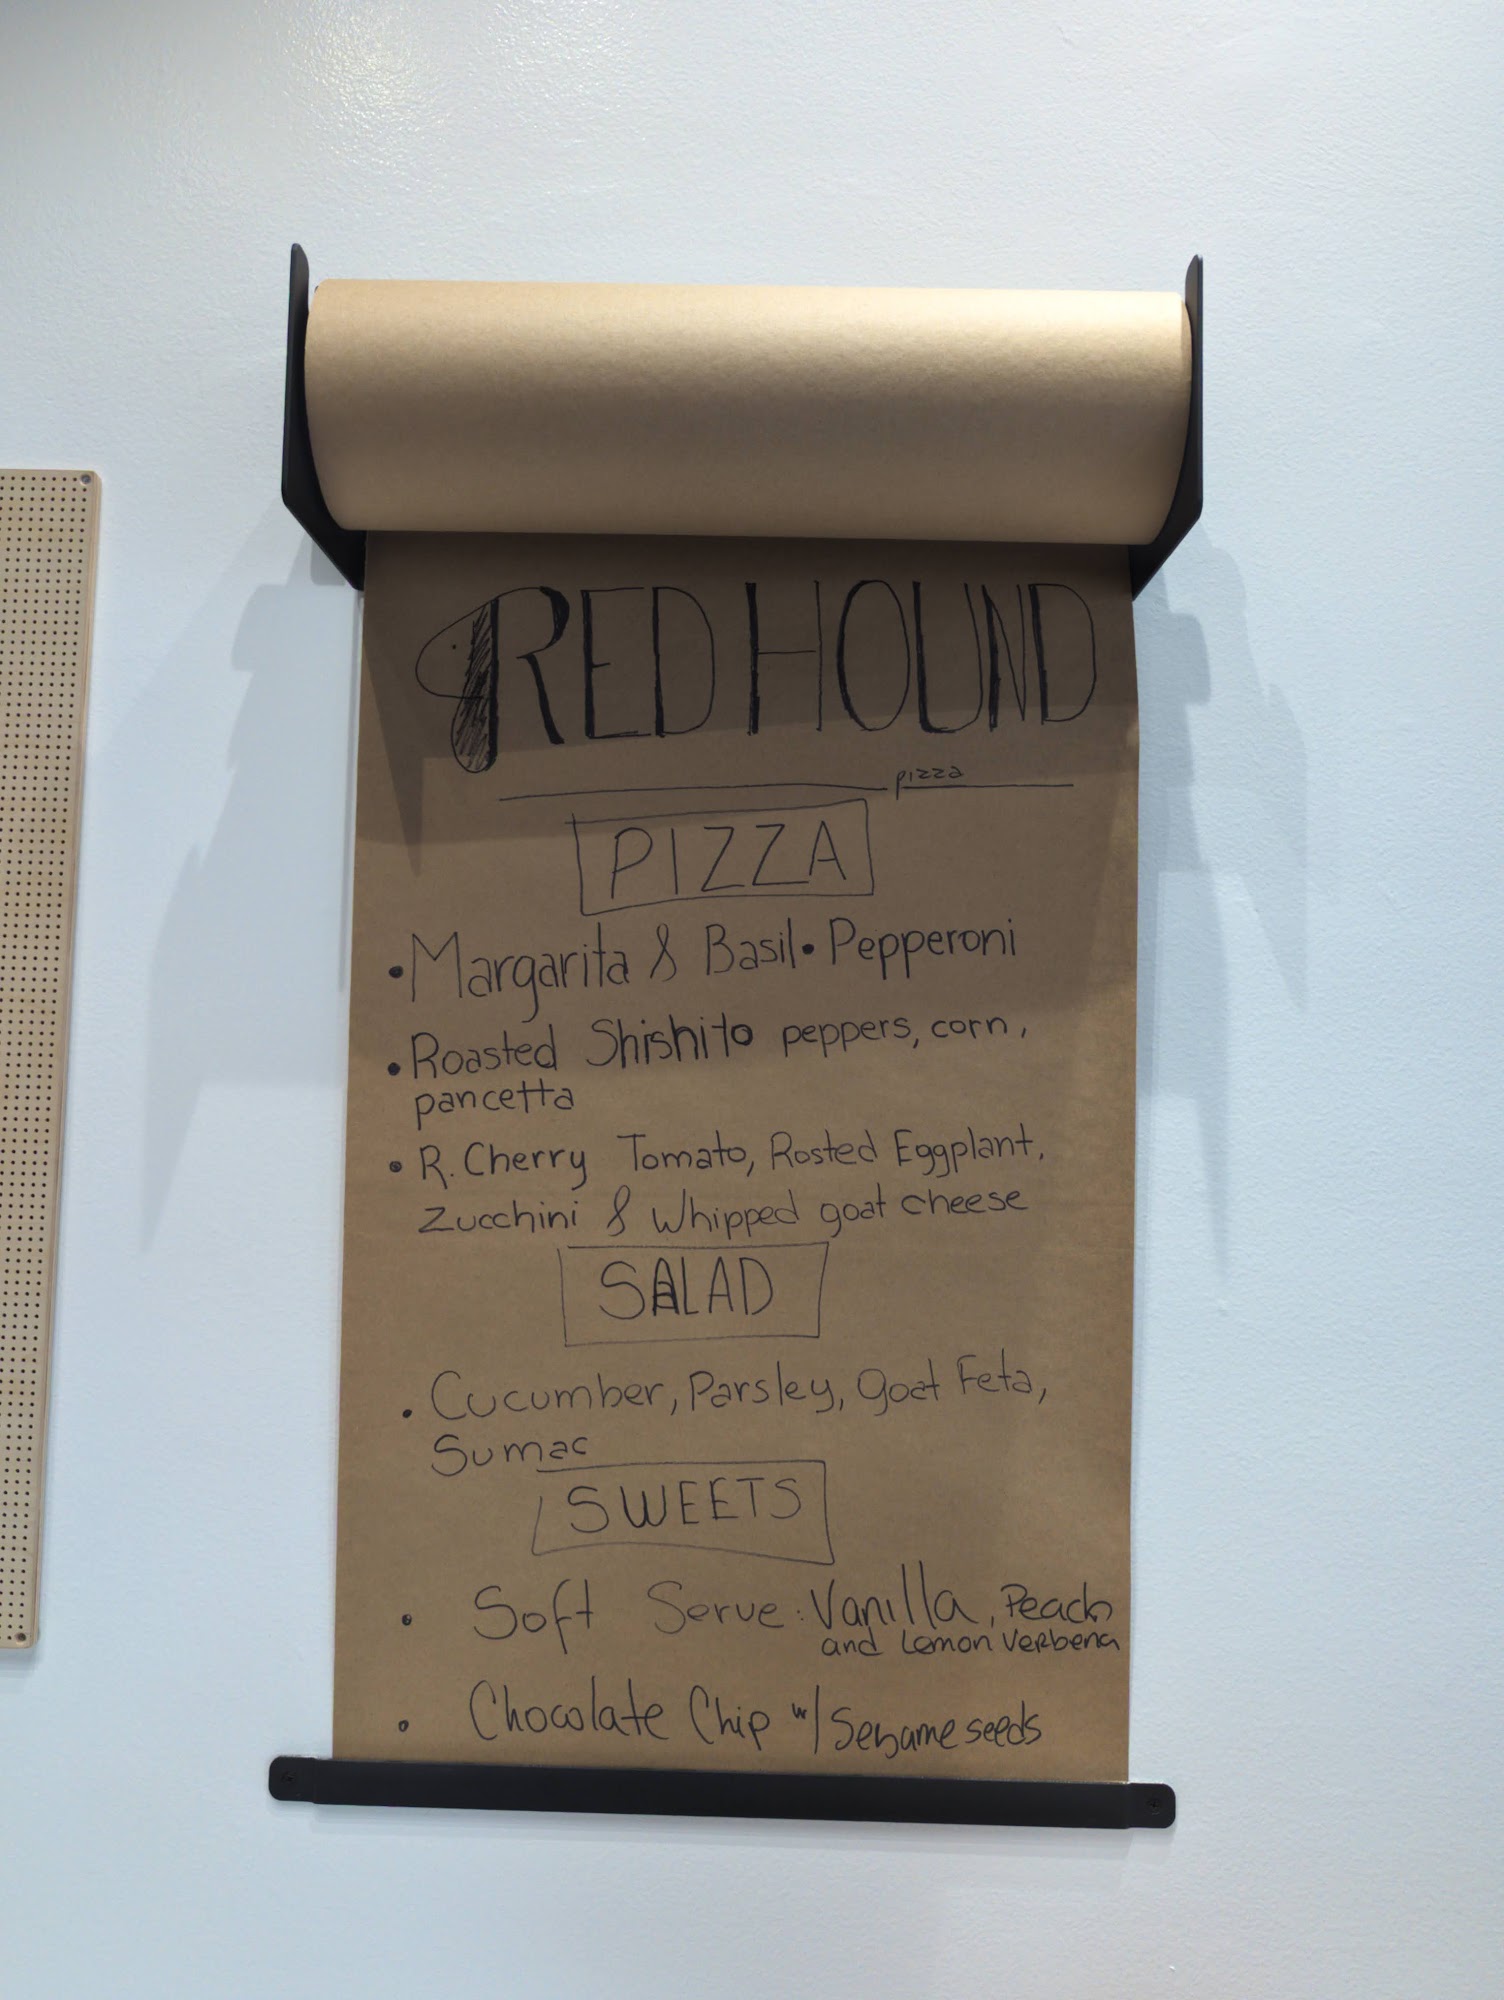 RED HOUND
pizza
PIZZA
• Margarita & Basil • Pepperoni
• Roasted Shishito peppers, corn,
pancetta
• R. Cherry Tomato, Rosted Eggplant,
Zucchini & Whipped goat cheese
SALAD
• Cucumber, Parsley, Goat Feta,
Sumac
SWEETS
• Soft Serve: Vanilla, Peach
and Lemon Verbena
• Chocolate Chip w/ Sesame seeds